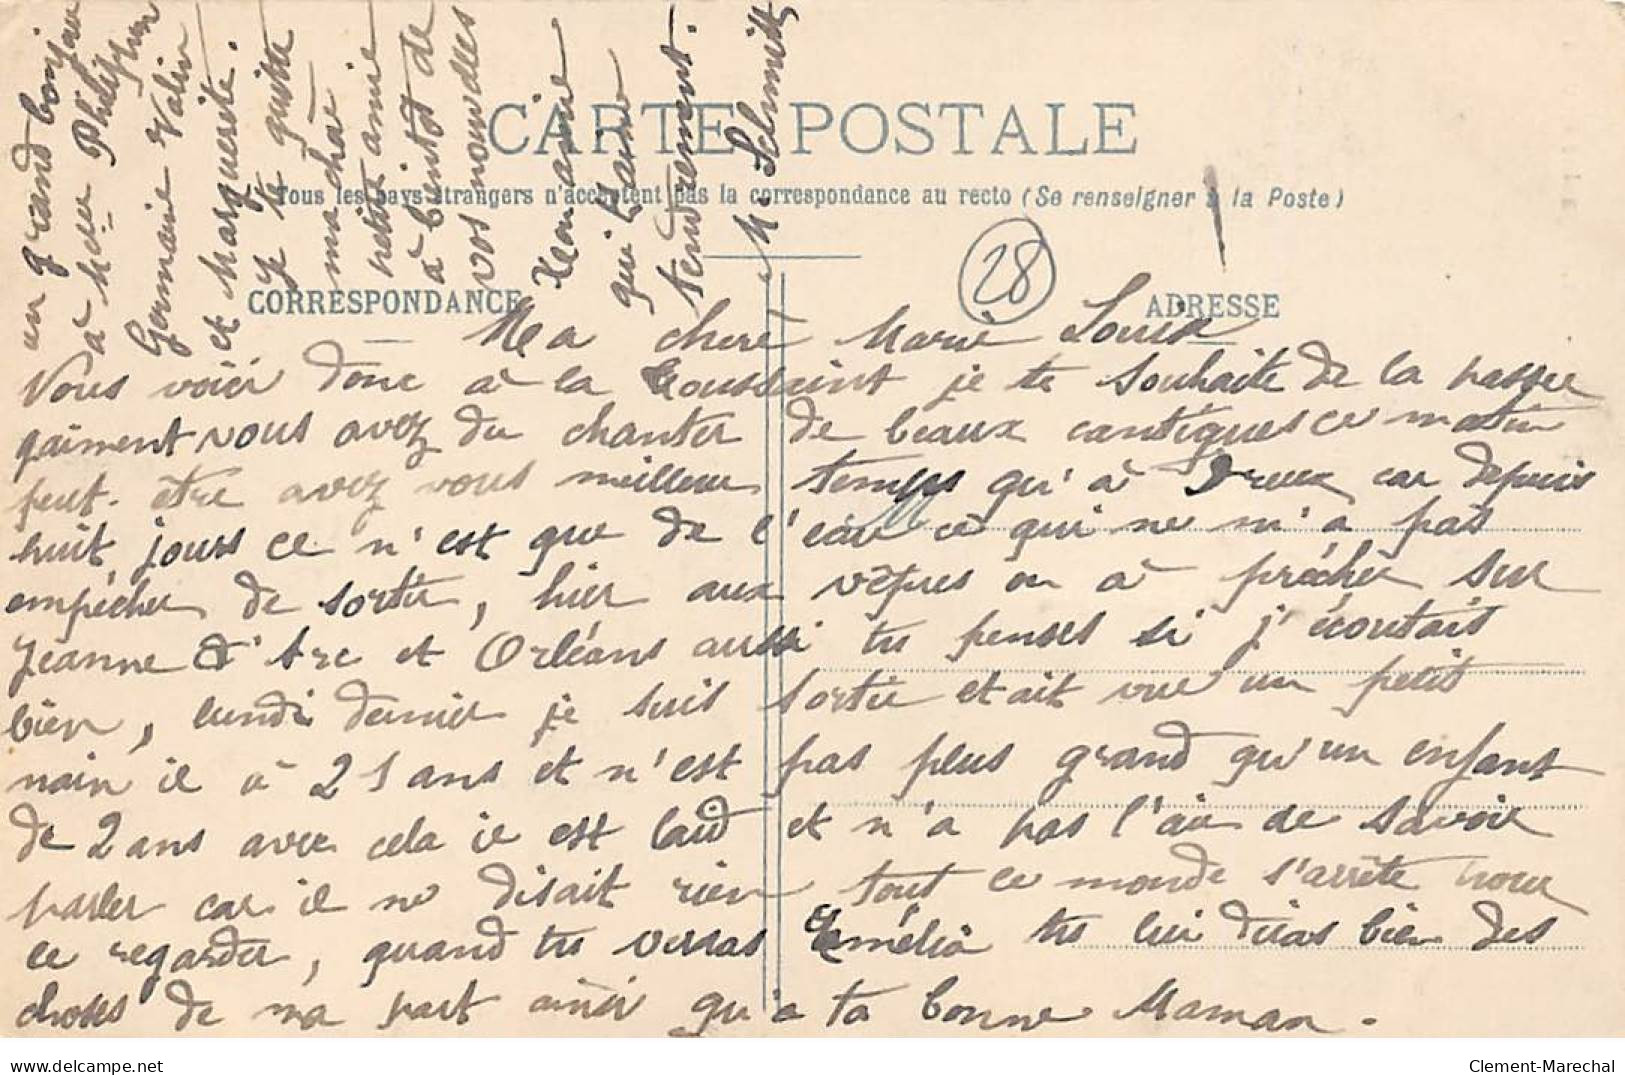 CARTE POSTALE
Tous les pays étrangers n'acceptent pas la correspondance au recto (Se renseigner à la Poste)
28
CORRESPONDANCE
ADRESSE
Ma chere Marie Louise
Vous voici donc à la Toussaint je te souhaite de la passer
gaiment vous avez du chanter de beaux cantiques ce matin
peut-être avez vous meilleur temps qu'à Dreux car depuis
huit jours ce n'est que de l'eau ce qui ne m'a pas
empécher de sortir, hier aux vêpres on à précher sur
Jeanne d'Arc et Orléans aussi tu penses si j'écoutais
bien, lundi dernier je suis sortie et ait vue un petit
nain il à 21 ans et n'est pas plus grand qu'un enfant
de 2 ans avec cela il est laid et n'a pas l'air de savoir
parler car il ne disait rien tout ce monde s'arrête pour
le regarder, quand tu verras Emélia tu lui diras bien des
choses de ma part ainsi qu'a ta bonne Maman.
un grand bonjour
à Melles Philippine
Germaine Valin
et Marguerite.
Je te quitte
ma chère
petite amie
à bientôt de
vos nouvelles
Ton amie
qui t'aime
tendrement.
M. Schmitt
delcampe.net
Clement-Marechal